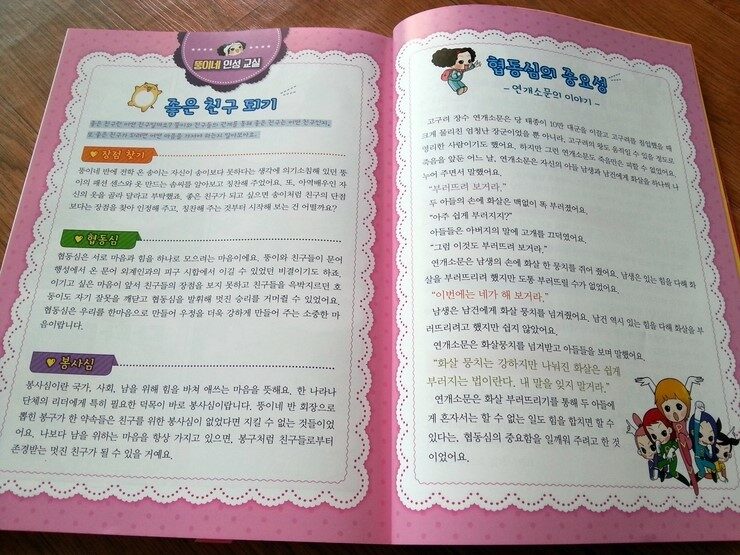 뚱이네 인성 교실
좋은 친구 되기
좋은 친구란 어떤 친구일까요? 뚱이와 친구들의 관계를 통해 좋은 친구는 어떤 친구인지,
또 좋은 친구가 되려면 어떤 마음을 가져야 하는지 알아보아요.
장점 찾기
뚱이네 반에 전학 온 송이는 자신이 송이보다 못하다는 생각에 의기소침해 있던 뚱
이의 패션 센스와 옷 만드는 솜씨를 알아보고 칭찬해 주었어요. 또, 아역배우인 자
신의 옷을 골라 달라고 부탁했죠. 좋은 친구가 되고 싶으면 송이처럼 친구의 단점
보다는 장점을 찾아 인정해 주고, 칭찬해 주는 것부터 시작해 보는 건 어떨까요?
협동심
협동심은 서로 마음과 힘을 하나로 모으려는 마음이에요. 뚱이와 친구들이 문어
행성에서 온 문어 외계인과의 피구 시합에서 이길 수 있었던 비결이기도 하죠.
이기고 싶은 마음이 앞서 친구들의 장점을 보지 못하고 친구들을 윽박지르던 호
동이도 자기 잘못을 깨닫고 협동심을 발휘해 멋진 승리를 거머쥘 수 있었어요.
협동심은 우리를 한마음으로 만들어 우정을 더욱 강하게 만들어 주는 소중한 마
음이랍니다.
봉사심
봉사심이란 국가, 사회, 남을 위해 힘을 바쳐 애쓰는 마음을 뜻해요. 한 나라나
단체의 리더에게 특히 필요한 덕목이 바로 봉사심이랍니다. 뚱이네 반 회장으로
뽑힌 봉구가 한 약속들은 친구를 위한 봉사심이 없었다면 지킬 수 없는 것들이었
어요. 나보다 남을 위하는 마음을 항상 가지고 있으면, 봉구처럼 친구들로부터
존경받는 멋진 친구가 될 수 있을 거예요.
협동심의 중요성
- 연개소문의 이야기 -
고구려 장수 연개소문은 당 태종이 10만 대군을 이끌고 고구려를 침입했을 때
크게 물리친 엄청난 장군이었을 뿐 아니라, 고구려의 왕도 움직일 수 있을 정도로
영리한 사람이기도 했어요. 하지만 그런 연개소문도 죽음만은 피할 수 없었어요.
죽음을 앞둔 어느 날, 연개소문은 자신의 아들 남생과 남건에게 화살을 하나씩 나
누어 주면서 말했어요.
“부러뜨려 보거라.”
두 아들의 손에 화살은 맥없이 똑 부러졌어요.
“아주 쉽게 부러지지?”
아들들은 아버지의 말에 고개를 끄덕였어요.
“그럼 이것도 부러뜨려 보거라.”
연개소문은 남생의 손에 화살 한 뭉치를 쥐어 줬어요. 남생은 있는 힘을 다해 화
살을 부러뜨리려 했지만 도통 부러뜨릴 수가 없었어요.
“이번에는 네가 해 보거라.”
남생은 남건에게 화살 뭉치를 넘겨줬어요. 남건 역시 있는 힘을 다해 화살을 부
러뜨리려고 했지만 쉽지 않았어요.
연개소문은 화살뭉치를 넘겨받고 아들들을 보며 말했어요.
“화살 뭉치는 강하지만 나눠진 화살은 쉽게
부러지는 법이란다. 내 말을 잊지 말거라.”
연개소문은 화살 부러뜨리기를 통해 두 아들에
게 혼자서는 할 수 없는 일도 힘을 합치면 할 수
있다는, 협동심의 중요함을 일깨워 주려고 한 것
이었어요.